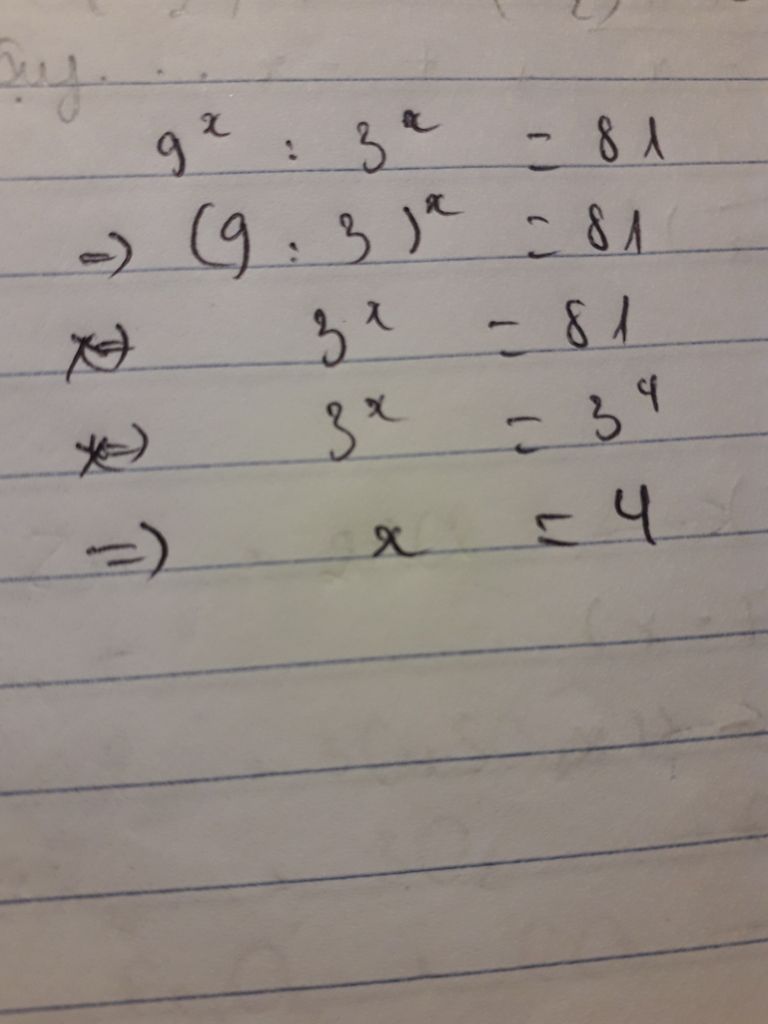 9^x : 3^x = 81
=> (9 : 3)^x = 81
3^x = 81
3^x = 3^4
=> x = 4